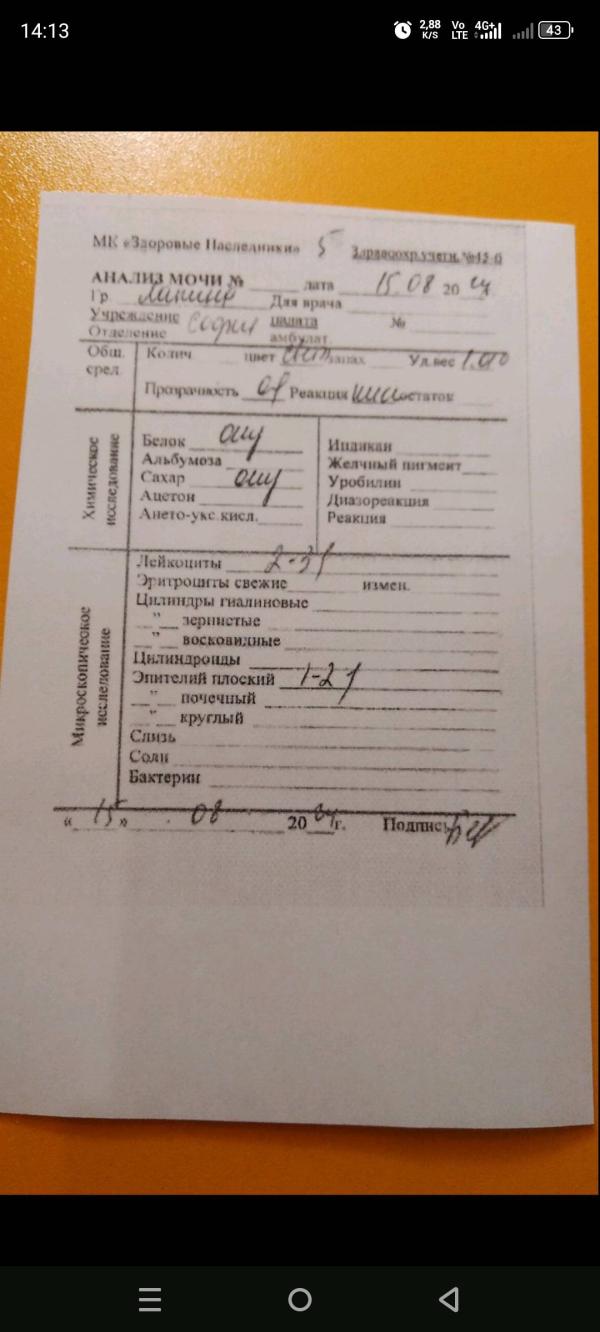 14:13
2,88 K/S Vo LTE 4G+ 43
МК «Здоровые Наследники» 5 Здравоохр.учетн. №
АНАЛИЗ МОЧИ № дата 15 08 20 24
Гр Для врача
Учреждение София палата №
Отделение амбулат.
Общ. Колич. цвет запах Ул.вес
срел.
Прозрачность Реакция остаток
Химическое исследование
Белок отц Индикан
Альбумоза Желчный пигмент
Сахар отц Уробилин
Ацетон Диазореакция
Ането-укс.кисл. Реакция
Микроскопическое исследование
Лейкоциты 2-3
Эритроциты свежие измен.
Цилиндры гиалиновые
" зернистые
" восковидные
Цилиндроиды
Эпителий плоский 1-2
" почечный
" круглый
Слизь
Соли
Бактерии
« 15 » 08 20 24 г. Подпись